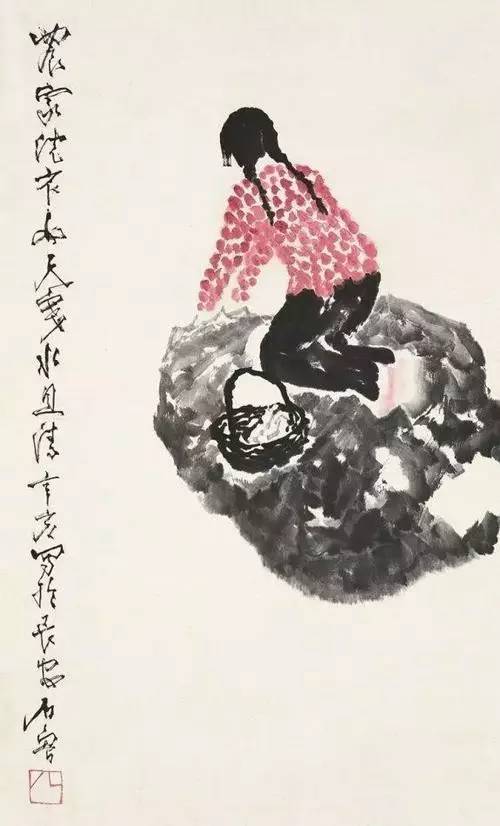 農家洗衣女天寒水且清辛亥写於長安石魯